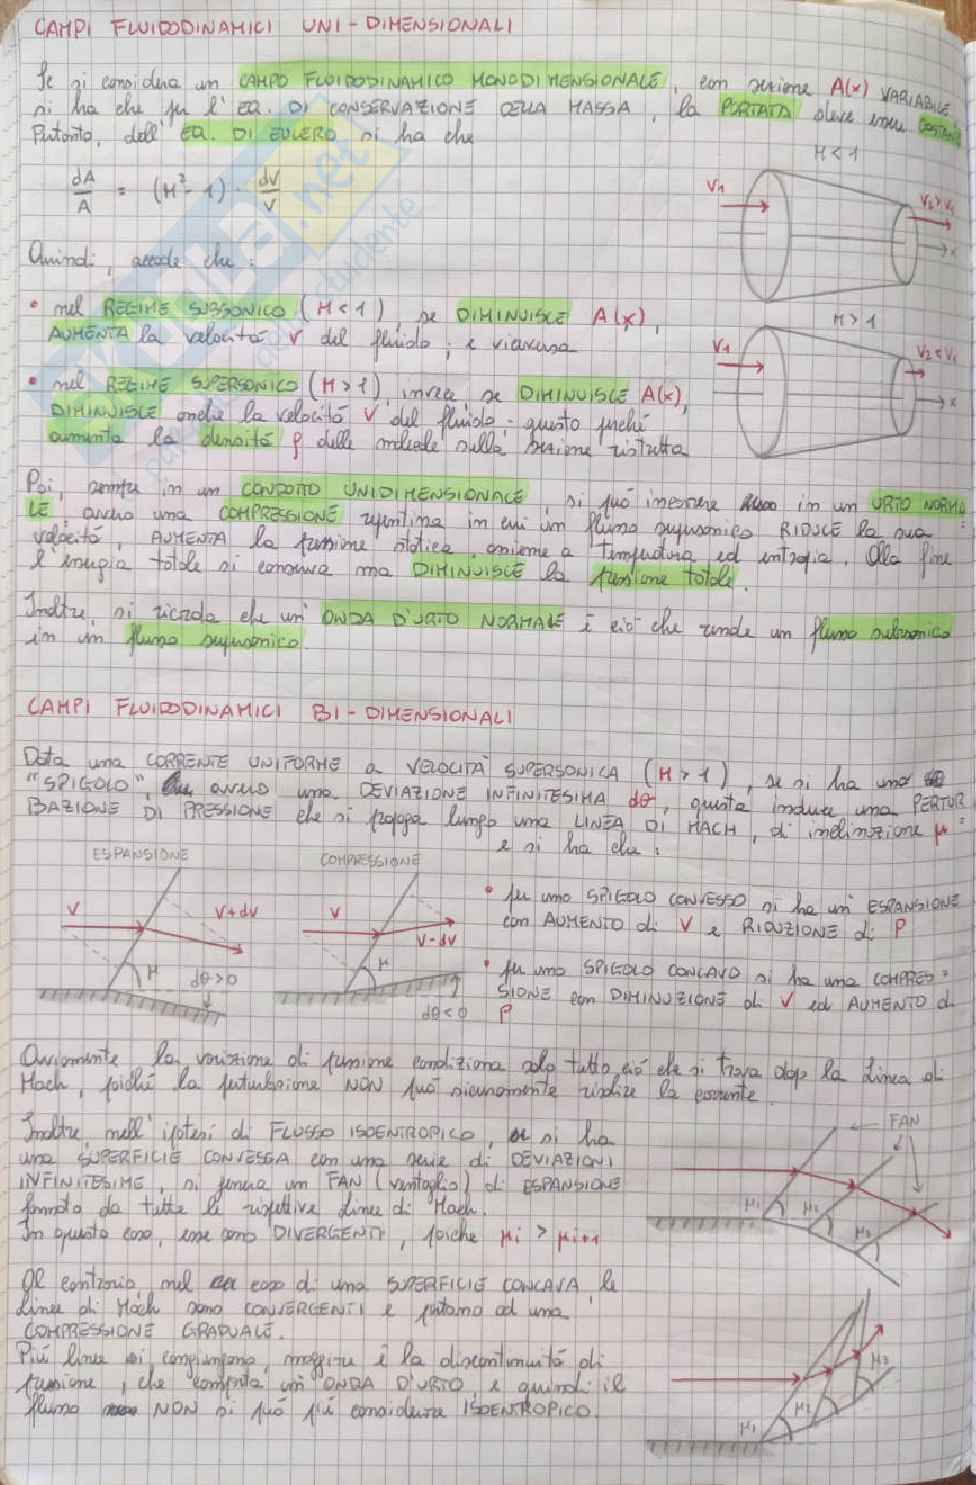 CAMPI FLUIDODINAMICI UNI-DIMENSIONALI
Se si considera un CAMPO FLUIDODINAMICO MONODIMENSIONALE, con sezione A(x) VARIABILE,
si ha che per l'EQ. DI CONSERVAZIONE DELLA MASSA, la PORTATA deve essere COSTANTE
Pertanto, dall'EQ. DI EULERO si ha che
M<1
dA/A = (M²-1) · dV/V
V1
V2>V1
x
Quindi, accade che:
• nel REGIME SUBSONICO (M<1) se DIMINUISCE A(x),
AUMENTA la velocità V del fluido; e viceversa
M>1
V1
V2<V1
x
• nel REGIME SUPERSONICO (M>1), invece se DIMINUISCE A(x),
DIMINUISCE anche la velocità V del fluido: questo perché
aumenta la densità ρ delle molecole sulla sezione ristretta
Poi, sempre in un CONDOTTO UNIDIMENSIONALE, si può inserire in un URTO NORMA=
LE, ovvero una COMPRESSIONE repentina in cui un flusso supersonico RIDUCE la sua
velocità, AUMENTA la pressione statica, assieme a temperatura ed entropia. Alla fine
l'energia totale si conserva ma DIMINUISCE la pressione totale.
Inoltre, si ricorda che un'ONDA D'URTO NORMALE è ciò che rende un flusso subsonico
in un flusso supersonico.
CAMPI FLUIDODINAMICI BI-DIMENSIONALI
Data una CORRENTE UNIFORME a VELOCITÀ SUPERSONICA (M>1), se si ha uno
"SPIGOLO", ovvero una DEVIAZIONE INFINITESIMA dθ, questa induce una PERTUR=
BAZIONE DI PRESSIONE che si propaga lungo una LINEA DI MACH, di inclinazione μ
e si ha che:
ESPANSIONE
V
V+dV
μ
dθ>0
COMPRESSIONE
V
V-dV
μ
dθ<0
• per uno SPIGOLO CONVESSO si ha un'ESPANSIONE
con AUMENTO di V e RIDUZIONE di P
• per uno SPIGOLO CONCAVO si ha una COMPRES=
SIONE con DIMINUZIONE di V ed AUMENTO di
P
Ovviamente la variazione di pressione condiziona solo tutto ciò che si trova dopo la Linea di
Mach, poiché la perturbazione NON può sicuramente risalire la corrente.
Inoltre, nell'ipotesi di FLUSSO ISOENTROPICO, se si ha
una SUPERFICIE CONVESSA con una serie di DEVIAZIONI
INFINITESIME, si genera un FAN (ventaglio) di ESPANSIONE
formato da tutte le rispettive linee di Mach.
In questo caso, esse sono DIVERGENTI, poiché μi > μi+1
FAN
μ1
μ2
μ3
Al contrario, nel caso di una SUPERFICIE CONCAVA, le
Linee di Mach sono CONVERGENTI e portano ad una
COMPRESSIONE GRADUALE.
Più linee si congiungono, maggiore è la discontinuità di
pressione, che comporta un'ONDA D'URTO, e quindi il
flusso NON si può più considerare ISOENTROPICO.
μ1
μ2
μ3